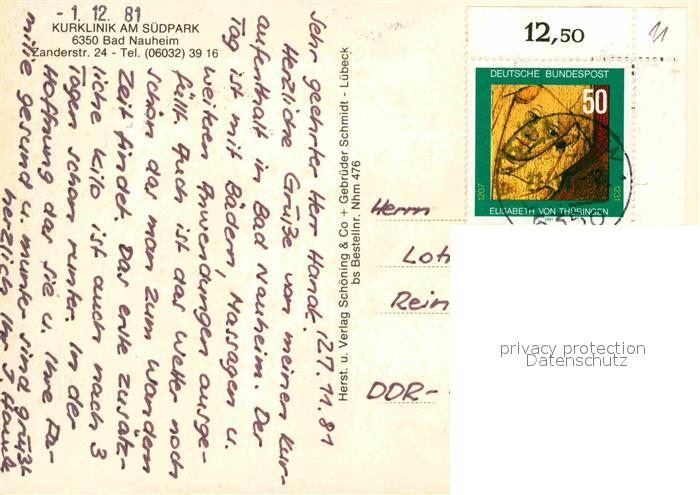 - 1. 12. 81
KURKLINIK AM SÜDPARK
6350 Bad Nauheim
Zanderstr. 24 - Tel. (06032) 39 16
Sehr geehrter Herr Handt. 27.11.81
Herzliche Grüße von meinen Kur-
aufenthalt in Bad Nauheim. Der
Tag ist mit Bädern, Massagen u.
weiteren Anwendungen ausge-
füllt. Auch ist das Wetter noch
schön das man zum Wandern
Zeit findet. Das erste zusätz-
liche Kilo ist auch nach 3
Tagen schon runter. In der
Hoffnung das Sie u. Ihre Fa-
milie gesund u. munter sind grüßt
herzlich Ihr J.
Herst. u. Verlag Schöning & Co + Gebrüder Schmidt - Lübeck
bs Bestellnr. Nhm 476
12,50
11
DEUTSCHE BUNDESPOST
50
1207
1231
ELISABETH VON THÜRINGEN
Herrn
Lot
Rein
DDR-
privacy protection
Datenschutz